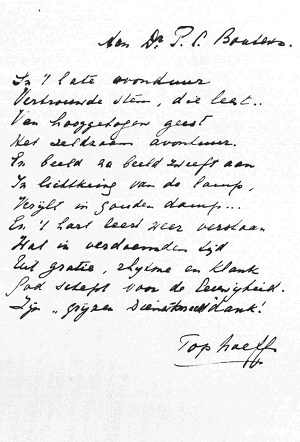 Aan Dr. P. C. Boutens.
In 't late avonduur
Vertrouwde stem, die leest..
Van hooggetogen geest
Het zeldzaam avontuur.
En beeld na beeld zweeft aan
In lichtkring van de lamp,
Verijlt in gouden damp...
En 't hart leert weer verstaan
Wat in verdoemden tijd
Uit gratie, rhytme en klank
God schept voor de eeuwigheid.
Zijn "grijzen Dienstknecht" dank!
Top Naeff